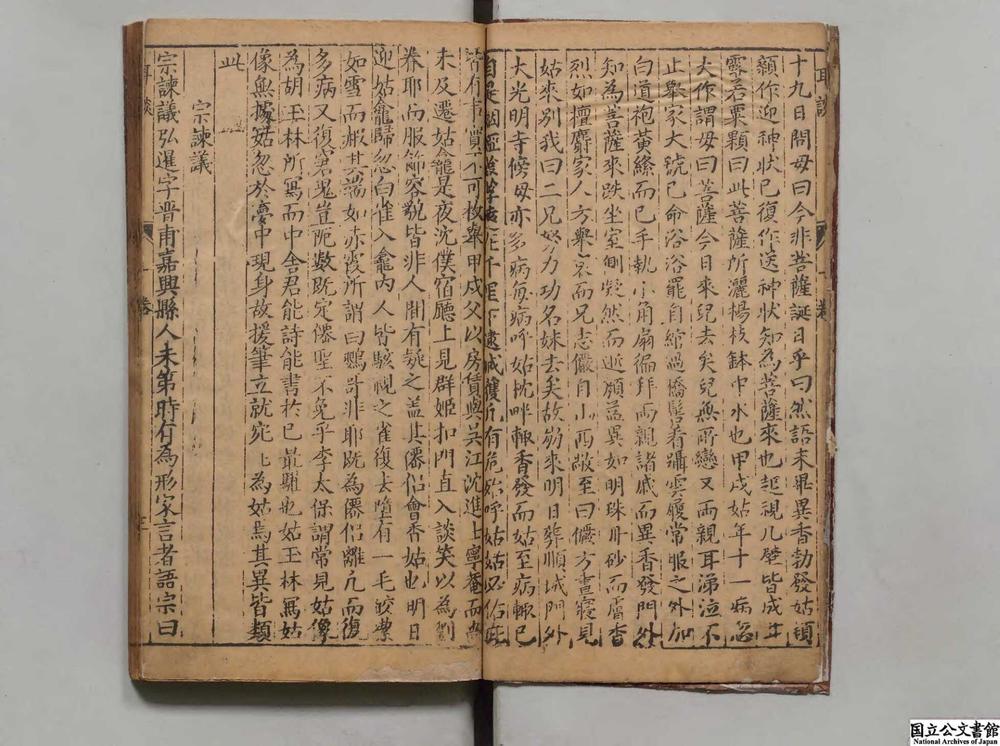 耳談
十九日問母曰今非菩薩誕日乎曰然語未畢異香勃發姑頓
顙作迎神狀已復作送神狀知為菩薩來也趨視几壁皆成
霛若粟顆曰此菩薩所灑楊枝鉢中水也甲戌姑年十一病忽
大作謂母曰菩薩今日來兒去矣兒無所戀又兩親耳涕泣不
止舉家大號已命浴浴罷自綰過橋髻看躡雲履常服之外加
白道袍黃絛而已手執小角扇徧拜兩親諸戚而異香發門外
知為菩薩來趺坐室側凝然而逝顏益異如明珠丹砂而膚香
烈如檀麝家人方舉哀而兄志儼自小西敞至曰儼方晝寢見
姑來別我曰二兄努力功名妹去矣故來明日葬順城門外
大光明寺傍母亦多病每病呼姑枕畔輒香發而姑至病輒已
千里下逮臧獲凡有危殆呼姑姑必佑
不可枚舉甲戌父以房賃與吳江沈進士寧菴而
未及遷姑龕是夜沈僕宿廳上見群姬扣門直入談笑以為劉
眷耶而服飾容貌皆非人間有疑之蓋其僊侶會香姑也明日
迎姑龕歸忽白雀入龕內人皆駭視之雀復去墮有一毛皎瑩
如雪而椒其端如赤霞所謂白鸚哥非耶既為僊侶離凡而復
多病又復窘鬼豈阨數既定僊聖不免乎李太保謂常見姑像
為胡玉林所寫而中舍君能詩能書於巳最驩也姑玉林寫姑
像無據姑忽於夢中現身故援筆立就宛上為姑焉其異皆類
此
宗諫議
宗諫議弘暹字晋甫嘉興縣人未第時有為形家言者語宗曰
国立公文書館
National Archives of Japan